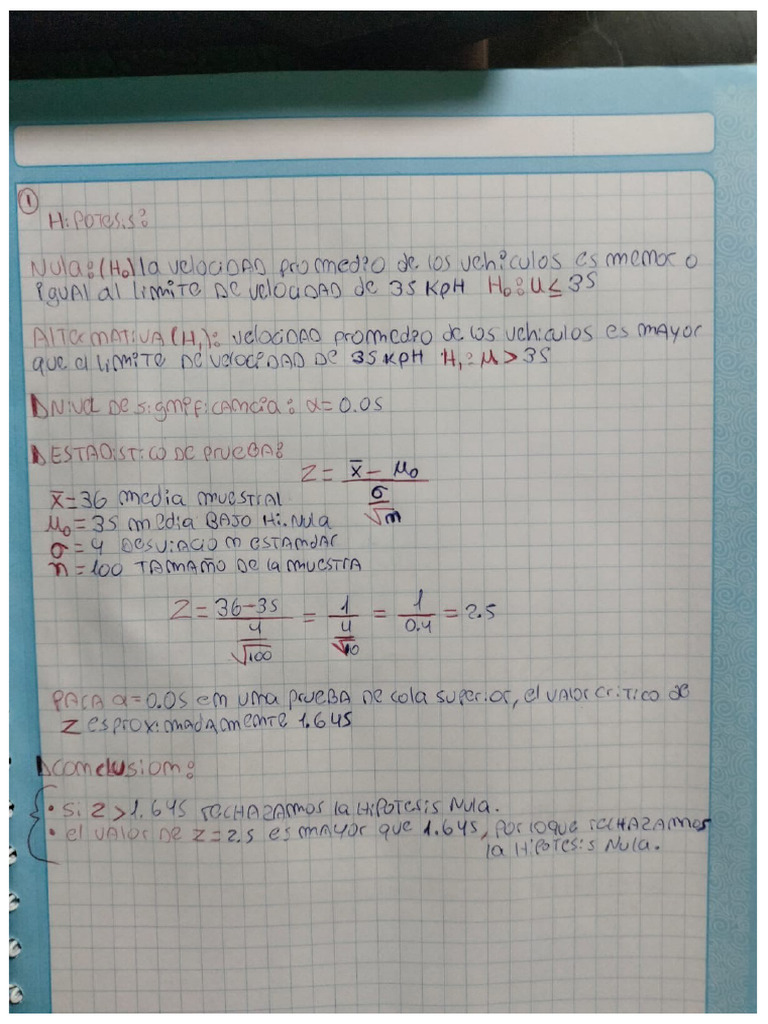 1
Hipotesis:
Nula:(H₀) la velocidad promedio de los vehiculos es menor o
igual al limite de velocidad de 35 KPH H₀: u ≤ 35
Alternativa (H₁): velocidad promedio de los vehiculos es mayor
que el limite de velocidad de 35 KPH H₁: μ > 35
Nivel de significancia: α = 0.05
Estadistico de prueba:
Z = (x̄ - μ₀) / (σ / √n)
x̄ = 36 media muestral
μ₀ = 35 media bajo Hi. Nula
σ = 4 desviacion estandar
n = 100 tamaño de la muestra
Z = (36-35) / (4 / √100) = 1 / (4 / √10) = 1 / 0.4 = 2.5
Para α = 0.05 en una prueba de cola superior, el valor critico de
Z es proximadamente 1.645
Conclusion:
• Si Z > 1.645 rechazamos la hipotesis nula.
• el valor de Z = 2.5 es mayor que 1.645, por lo que rechazamos
la hipotesis nula.